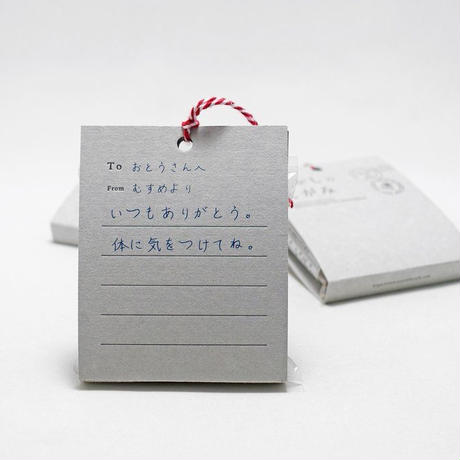 To おとうさんへ
From むすめより
いつもありがとう。
体に気をつけてね。